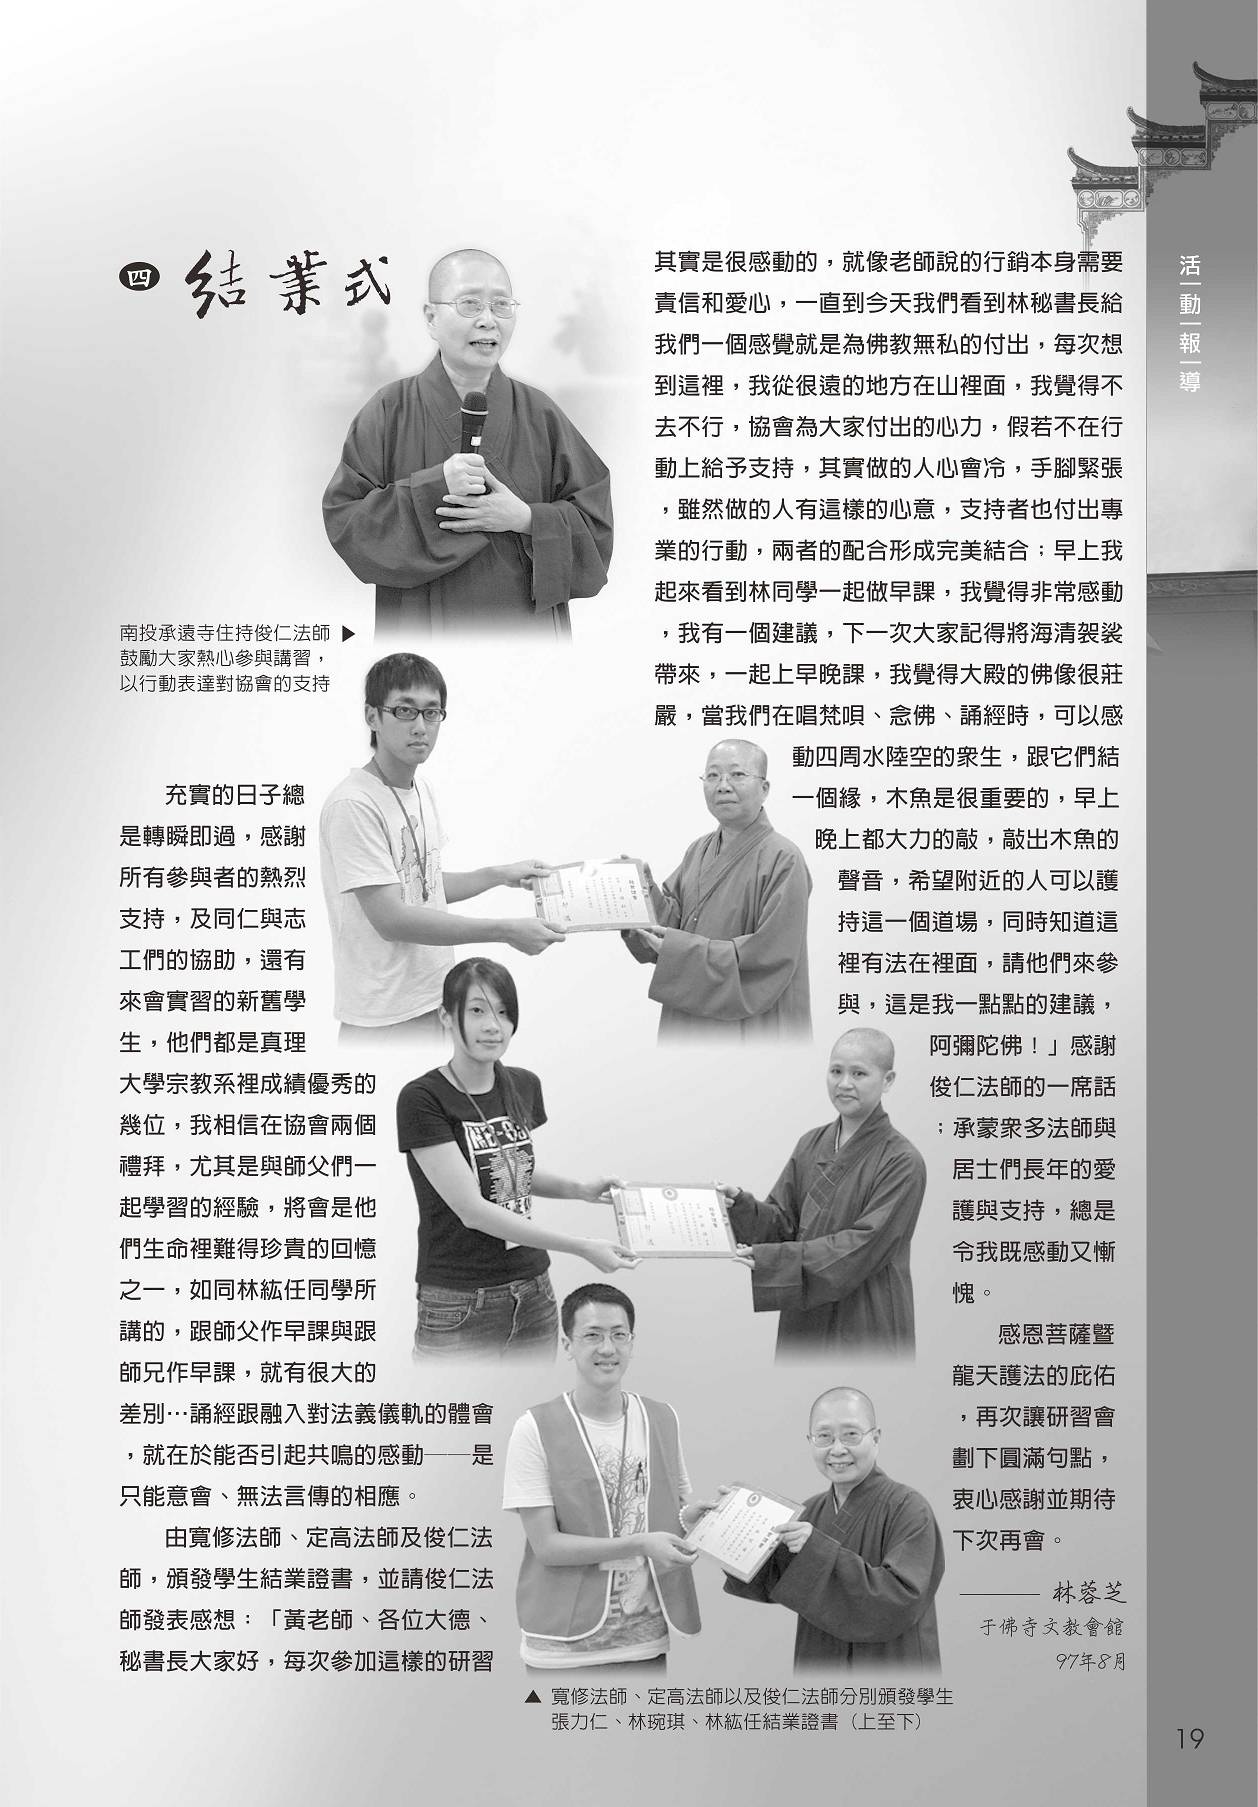 四 結業式
南投承遠寺住持俊仁法師
鼓勵大家熱心參與講習，
以行動表達對協會的支持
充實的日子總
是轉瞬即過，感謝
所有參與者的熱烈
支持，及同仁與志
工們的協助，還有
來會實習的新舊學
生，他們都是真理
大學宗教系裡成績優秀的
幾位，我相信在協會兩個
禮拜，尤其是與師父們一
起學習的經驗，將會是他
們生命裡難得珍貴的回憶
之一，如同林紘任同學所
講的，跟師父作早課與跟
師兄作早課，就有很大的
差別…誦經跟融入對法義儀軌的體會
，就在於能否引起共鳴的感動——是
只能意會、無法言傳的相應。
由寬修法師、定高法師及俊仁法
師，頒發學生結業證書，並請俊仁法
師發表感想：「黃老師、各位大德、
秘書長大家好，每次參加這樣的研習
其實是很感動的，就像老師說的行銷本身需要
責信和愛心，一直到今天我們看到林秘書長給
我們一個感覺就是為佛教無私的付出，每次想
到這裡，我從很遠的地方在山裡面，我覺得不
去不行，協會為大家付出的心力，假若不在行
動上給予支持，其實做的人心會冷，手腳緊張
，雖然做的人有這樣的心意，支持者也付出專
業的行動，兩者的配合形成完美結合；早上我
起來看到林同學一起做早課，我覺得非常感動
，我有一個建議，下一次大家記得將海清袈裟
帶來，一起上早晚課，我覺得大殿的佛像很莊
嚴，當我們在唱梵唄、念佛、誦經時，可以感
動四周水陸空的眾生，跟它們結
一個緣，木魚是很重要的，早上
晚上都大力的敲，敲出木魚的
聲音，希望附近的人可以護
持這一個道場，同時知道這
裡有法在裡面，請他們來參
與，這是我一點點的建議，
阿彌陀佛！」感謝
俊仁法師的一席話
；承蒙眾多法師與
居士們長年的愛
護與支持，總是
令我既感動又慚
愧。
感恩菩薩暨
龍天護法的庇佑
，再次讓研習會
劃下圓滿句點，
衷心感謝並期待
下次再會。
——林蓉芝
于佛寺文教會館
97年8月
▲ 寬修法師、定高法師以及俊仁法師分別頒發學生
張力仁、林琬琪、林紘任結業證書（上至下）
活動報導
19